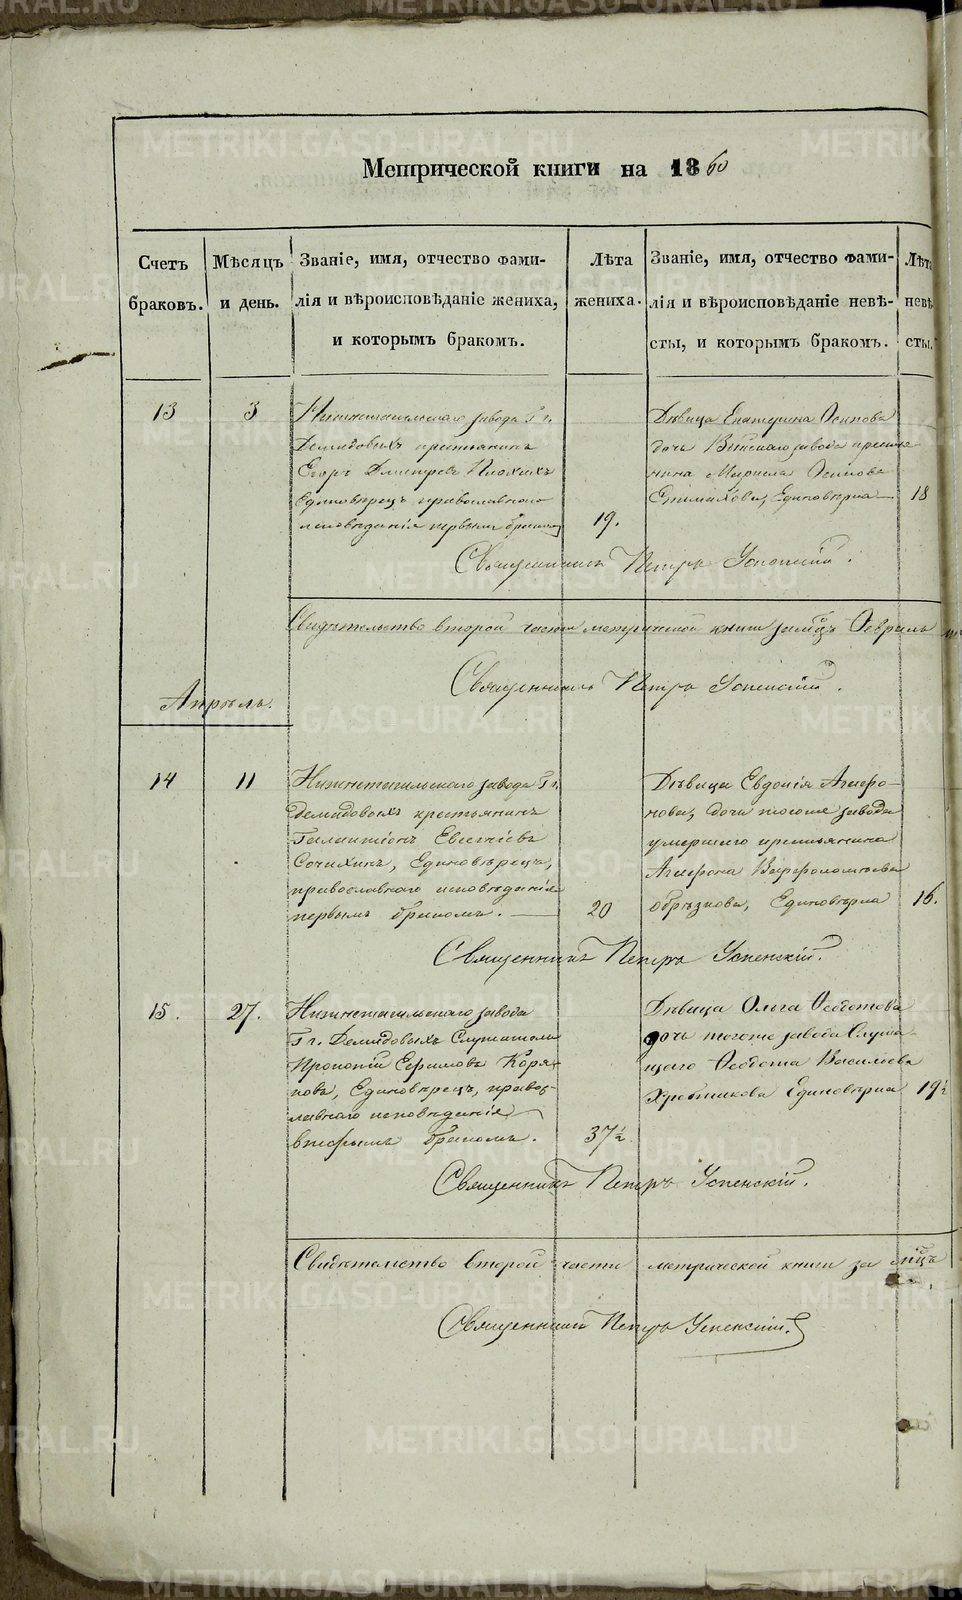 METRIKI.GASO-URAL.RU
Метрической книги на 1860
Счетъ браковъ.
Мѣсяцъ и день.
Званіе, имя, отчество фами-
лія и вѣроисповѣданіе жениха,
и которымъ бракомъ.
Лѣта
жениха.
Званіе, имя, отчество фами-
лія и вѣроисповѣданіе невѣ-
сты, и которымъ бракомъ.
Лѣта
невѣ
сты.
13
3
Нижнетагильскаго завода Гг.
Демидовыхъ крестьянинъ
Егоръ Дмитріевъ
Единовѣрецъ православнаго
исповѣданія первымъ бракомъ
19.
Дѣвица Екатерина Осипова
дочь Выйскаго завода крестья
нина Осипова
Единовѣрка
18
Священникъ Петръ Успенскій.
Свидѣтельство второй части метрической книги за мцъ Февраль
Священникъ Петръ Успенскій.
Апрѣль.
14
11
Нижнетагильскаго завода Гг.
Демидовыхъ крестьянинъ
Галактіонъ Евсигнѣевъ
Сочихинъ, Единовѣрецъ,
православнаго исповѣданія
первымъ бракомъ.
20
Дѣвица Евдокія Агафо-
нова, дочь тогоже завода
умершаго крестьянина
Агафона Варфоломѣева
Обрѣзкова, Единовѣрка
16.
Священникъ Петръ Успенскій.
15.
27.
Нижнетагильскаго завода
Гг. Демидовыхъ Служитель
Прокопій Ефимовъ Коря-
ковъ, Единовѣрецъ, правос-
лавнаго исповѣданія
вторымъ бракомъ.
37½
Дѣвица Ольга Ѳедотова
дочь тогоже завода Служа-
щаго Ѳедота Васильева
Хребтикова Единовѣрка
19½
Священникъ Петръ Успенскій.
Свидѣтельство второй части метрической книги за мцъ
Священникъ Петръ Успенскій.